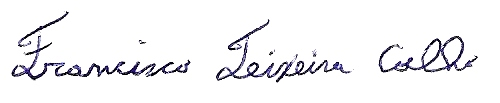 Francisco Teixeira Coelho